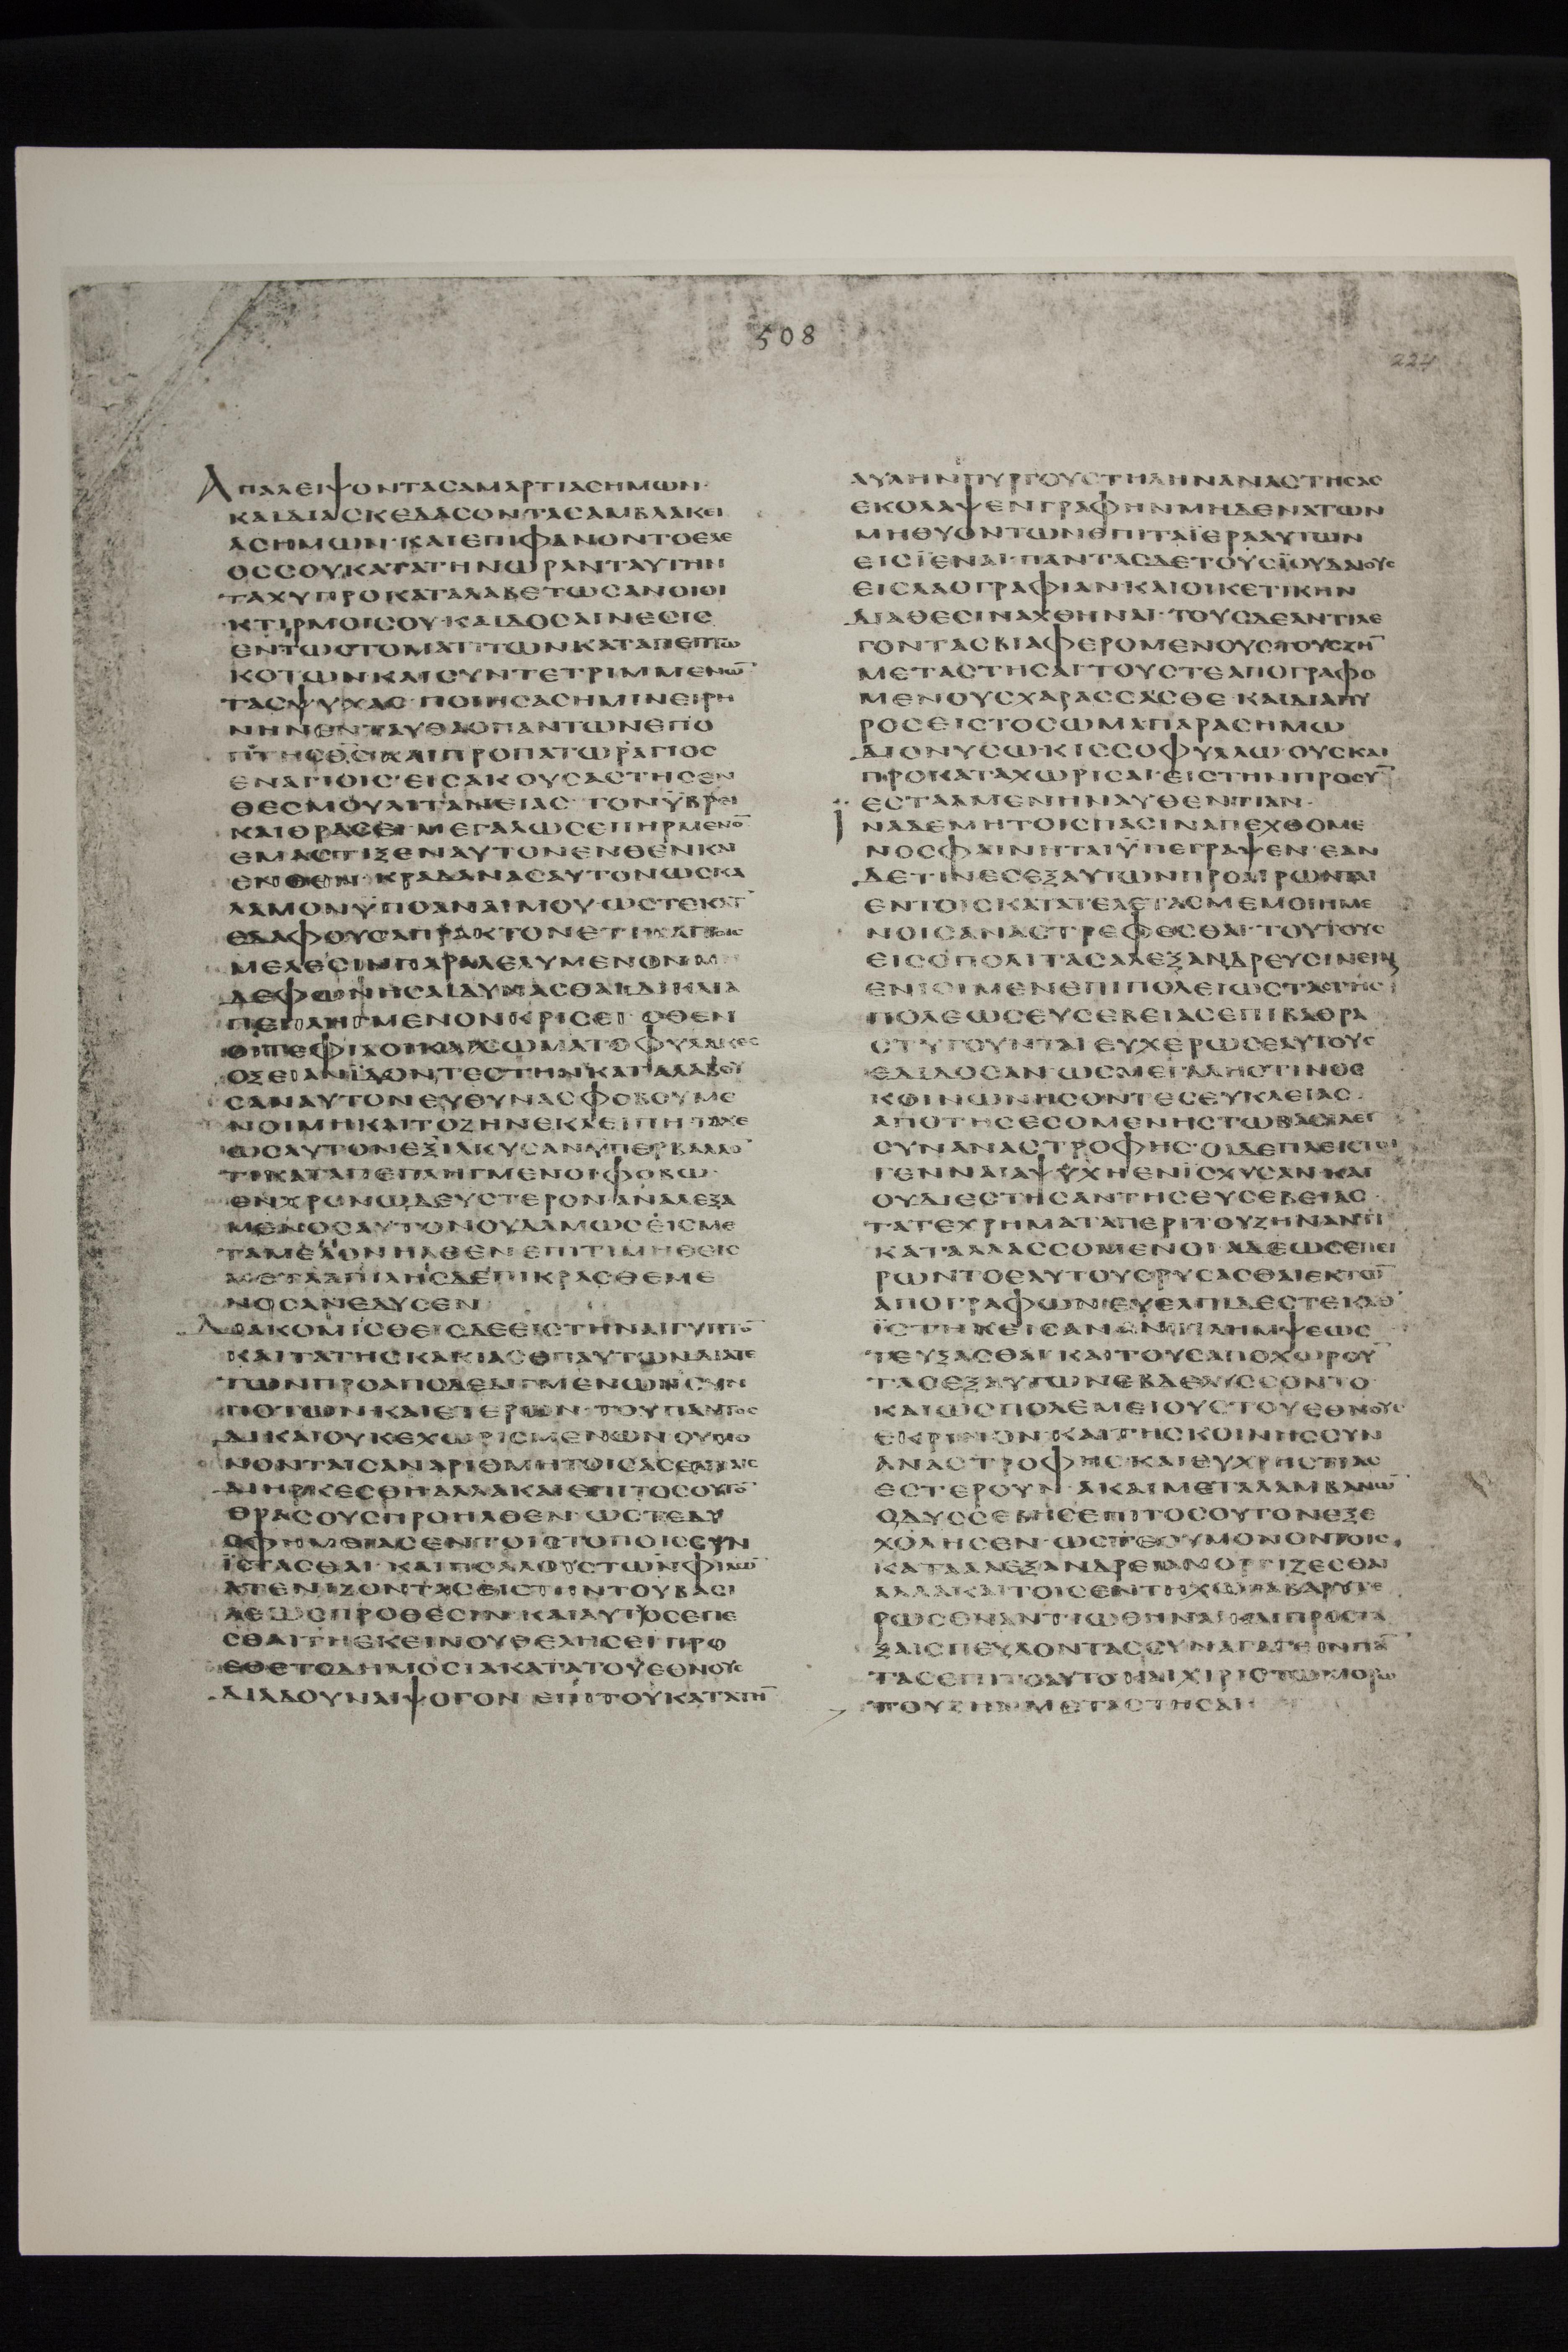 508
224
ΑΠΑΛΕΙΨΟΝΤΑϹΑΜΑΡΤΙΑϹΗΜΩΝ·
ΚΑΙΔΙΑϹΚΕΔΑϹΟΝΤΑϹΑΜΒΛΑΚΕΙ
ΑϹΗΜΩΝ·ΚΑΙΕΠΙΦΑΝΟΝΤΟΕΛΕ
ΟϹϹΟΥΚΑΤΑΤΗΝΩΡΑΝΤΑΥΤΗΝ
ΤΑΧΥΠΡΟΚΑΤΑΛΑΒΕΤΩϹΑΝΟΙΟΙ
ΚΤΙΡΜΟΙϹΟΥ·ΚΑΙΔΟϹΑΙΝΕϹΙϹ
ΕΝΤΩϹΤΟΜΑΤΙΤΩΝΚΑΤΑΠΕΠΤΩ
ΚΟΤΩΝΚΑΙϹΥΝΤΕΤΡΙΜΜΕΝΩ̅
ΤΑϹΨΥΧΑϹ·ΠΟΙΗϹΑϹΗΜΙΝΕΙΡΗ
ΝΗΝΕΝΤΑΥΘΑΟΠΑΝΤΩΝΕΠΟ
ΠΤΗϹΘ̅Ϲ̅ΚΑΙΠΡΟΠΑΤΩΡΑΓΙΟϹ
ΕΝΑΓΙΟΙϹ·ΕΙϹΑΚΟΥϹΑϹΤΗϹΕΝ
ΘΕϹΜΟΥΛΙΤΑΝΕΙΑϹ·ΤΟΝΫΒΡΕΙ
ΚΑΙΘΡΑϹΕΙΜΕΓΑΛΩϹΕΠΗΡΜΕΝΟ̅
ΕΜΑϹΤΙΞΕΝΑΥΤΟΝΕΝΘΕΝΚΑΙ
ΕΝΘΕΝ·ΚΡΑΔΑΝΑϹΑΥΤΟΝΩϹΚΑ
ΛΑΜΟΝΫΠΟΑΝΑΙΜΟΥ·ΩϹΤΕΚΑΤ
ΕΔΑΦΟΥϹΑΠΡΑΚΤΟΝΕΤΙΚΑΙΤΟΙϹ
ΜΕΛΕϹΙΝΠΑΡΑΛΕΛΥΜΕΝΟΝΜ
ΔΕΦΩΝΗϹΑΙΔΥΝΑϹΘΑΙΔΙΚΑΙΑ
ΠΕΠΛΗΓΜΕΝΟΝΚΡΙϹΕΙ·ΟΘΕΝ
ΟΙΤΕΦΙΛΟΙΚΑΙϹΩΜΑΤΟΦΥΛΑΚΕϹ
ΟΞΕΙΑΝΪΔΟΝΤΕϹΤΗΝΚΑΤΑΛΑΒΟΥ
ϹΑΝΑΥΤΟΝΕΥΘΥΝΑϹΦΟΒΟΥΜΕ
ΝΟΙΜΗΚΑΙΤΟΖΗΝΕΚΛΕΙΠΗΤΑΧΕ
ΩϹΑΥΤΟΝΕΞΙΛΚΥϹΑΝΫΠΕΡΒΑΛΛΟ̅
ΤΙΚΑΤΑΠΕΠΛΗΓΜΕΝΟΙΦΟΒΩ·
ΕΝΧΡΟΝΩΔΕΥϹΤΕΡΟΝΑΝΑΛΕΞΑ
ΜΕΝΟϹΑΥΤΟΝΟΥΔΑΜΩϹΕΙϹΜΕ
ΤΑΜΕΛΟΝΗΛΘΕΝΕΠΙΤΙΜΗΘΕΙϹ
ΜΕΤΑΑΠΙΛΗϹΔΕΠΙΚΡΑϹΘΕΜΕ
ΝΟϹΑΝΕΛΥϹΕΝ
ΔΙΑΚΟΜΙϹΘΕΙϹΔΕΕΙϹΤΗΝΑΙΓΥΠΤΟ̅
ΚΑΙΤΑΤΗϹΚΑΚΙΑϹΕΠΑΥΞΩΝΔΙΑΤΕ
ΤΩΝΠΡΟΑΠΟΔΕΔΙΓΜΕΝΩΝϹΥΝ
ΠΟΤΩΝ·ΚΑΙΕΤΕΡΩΝ·ΤΟΥΠΑΝΤΟϹ
ΔΙΚΑΙΟΥΚΕΧΩΡΙϹΜΕΝΩΝΟΥΜΟ
ΝΟΝΤΑΙϹΑΝΑΡΙΘΜΗΤΟΙϹΑϹΕΛΓΙΑΙϹ
ΔΙΗΡΚΕϹΘΗΑΛΛΑΚΑΙΕΠΙΤΟϹΟΥΤΟ̅
ΘΡΑϹΟΥϹΠΡΟΗΛΘΕΝ·ΩϹΤΕΔΥ
ϹΦΗΜΕΙΑϹΕΝΤΟΙϹΤΟΠΟΙϹϹΥΝ
ΪϹΤΑϹΘΑΙ·ΚΑΙΠΟΛΛΟΥϹΤΩΝΦΙΛΩ̅
ΑΤΕΝΙΖΟΝΤΑϹΕΙϹΤΗΝΤΟΥΒΑϹΙ
ΛΕΩϹΠΡΟΘΕϹΙΝ·ΚΑΙΑΥΤΟϹΕΠΕ
ϹΘΑΙΤΗΕΚΕΙΝΟΥΘΕΛΗϹΕΙΠΡΟ
ΕΘΕΤΟΔΗΜΟϹΙΑΚΑΤΑΤΟΥΕΘΝΟΥϹ
ΔΙΑΔΟΥΝΑΙΨΟΓΟΝ·ΕΠΙΤΟΥΚΑΤΑΤΗ̅
ΑΥΛΗΝΠΥΡΓΟΥϹΤΗΛΗΝΑΝΑϹΤΗϹΑϹ
ΕΚΟΛΑΨΕΝΓΡΑΦΗΝΜΗΔΕΝΑΤΩΝ
ΜΗΘΥΟΝΤΩΝΕΠΙΤΑΪΕΡΑΑΥΤΩΝ
ΕΙϹΪΕΝΑΙ·ΠΑΝΤΑϹΔΕΤΟΥϹΪΟΥΔΑΙΟΥϹ
ΕΙϹΛΑΟΓΡΑΦΙΑΝΚΑΙΟΙΚΕΤΙΚΗΝ
ΔΙΑΘΕϹΙΝΑΧΘΗΝΑΙ·ΤΟΥϹΔΕΑΝΤΙΛΕ
ΓΟΝΤΑϹΒΙΑΦΕΡΟΜΕΝΟΥϹΤΟΥΖΗ̅
ΜΕΤΑϹΤΗϹΑΙ·ΤΟΥϹΤΕΑΠΟΓΡΑΦΟ
ΜΕΝΟΥϹΧΑΡΑϹϹΑϹΘΕ·ΚΑΙΔΙΑΠΥ
ΡΟϹΕΙϹΤΟϹΩΜΑΠΑΡΑϹΗΜΩ
ΔΙΟΝΥϹΩ·ΚΙϹϹΟΦΥΛΛΩ·ΟΥϹΚΑΙ
ΠΡΟΚΑΤΑΧΩΡΙϹΑΙ·ΕΙϹΤΗΝΠΡΟϹΥ̅
ΕϹΤΑΛΜΕΝΗΝΑΥΘΕΝΤΙΑΝ·
ΙΝΑΔΕΜΗΤΟΙϹΠΑϹΙΝΑΠΕΧΘΟΜΕ
ΝΟϹΦΑΙΝΗΤΑΙΫΠΕΓΡΑΨΕΝ·ΕΑΝ
ΔΕΤΙΝΕϹΕΞΑΥΤΩΝΠΡΟΑΙΡΩΝΤΑΙ
ΕΝΤΟΙϹΚΑΤΑΤΕΛΕΤΑϹΜΕΜΟΙΗΜΕ
ΝΟΙϹΑΝΑϹΤΡΕΦΕϹΘΑΙ·ΤΟΥΤΟΥϹ
ΕΙϹΟΠΟΛΙΤΑϹΑΛΕΞΑΝΔΡΕΥϹΙΝΕΙΝΑΙ
ΕΝΙΟΙΜΕΝΕΠΙΠΟΛΕΙΩϹΤΑϹΤΗϹ
ΠΟΛΕΩϹΕΥϹΕΒΕΙΑϹΕΠΙΒΑΘΡΑ
ϹΤΥΓΟΥΝΤΑΙΕΥΧΕΡΩϹΕΑΥΤΟΥϹ
ΕΔΙΔΟϹΑΝ·ΩϹΜΕΓΑΛΗϹΤΙΝΟϹ
ΚΟΙΝΩΝΗϹΟΝΤΕϹΕΥΚΛΕΙΑϹ·
ΑΠΟΤΗϹΕϹΟΜΕΝΗϹΤΩΒΑϹΙΛΕΙ
ϹΥΝΑΝΑϹΤΡΟΦΗϹ·ΟΙΔΕΠΛΕΙϹΤΟΙ
ΓΕΝΝΑΙΑΨΥΧΗΕΝΪϹΧΥϹΑΝ·ΚΑΙ
ΟΥΔΙΕϹΤΗϹΑΝΤΗϹΕΥϹΕΒΕΙΑϹ·
ΤΑΤΕΧΡΗΜΑΤΑΠΕΡΙΤΟΥΖΗΝΑΝΤΙ
ΚΑΤΑΛΛΑϹϹΟΜΕΝΟΙΑΔΕΩϹΕΠΕΙ
ΡΩΝΤΟΕΑΥΤΟΥϹΡΥϹΑϹΘΑΙΕΚΤΩ̅
ΑΠΟΓΡΑΦΩΝ·ΕΥΕΛΠΙΔΕϹΤΕΚΑΘ
ΪϹΤΗΚΕΙϹΑΝΑΝΤΙΛΗΜΨΕΩϹ
ΤΕΥΞΑϹΘΑΙ·ΚΑΙΤΟΥϹΑΠΟΧΩΡΟΥ̅
ΤΑϹΕΞΑΥΤΩΝΕΒΔΕΛΥϹϹΟΝΤΟ·
ΚΑΙΩϹΠΟΛΕΜΕΙΟΥϹΤΟΥΕΘΝΟΥϹ
ΕΚΡΙΝΟΝ·ΚΑΙΤΗϹΚΟΙΝΗϹϹΥΝ
ΑΝΑϹΤΡΟΦΗϹΚΑΙΕΥΧΡΗϹΤΙΑϹ
ΕϹΤΕΡΟΥΝ·ΑΚΑΙΜΕΤΑΛΑΜΒΑΝΩ̅
ΟΔΥϹϹΕΒΗϹΕΠΙΤΟϹΟΥΤΟΝΕΞΕ
ΧΟΛΗϹΕΝ·ΩϹΤΕΟΥΜΟΝΟΝΤΟΙϹ
ΚΑΤΑΑΛΕΞΑΝΔΡΕΙΑΝΟΡΓΙΖΕϹΘΑΙ
ΑΛΛΑΚΑΙΤΟΙϹΕΝΤΗΧΩΡΑΒΑΡΥΤΕ
ΡΩϹΕΝΑΝΤΙΩΘΗΝΑΙ·ΚΑΙΠΡΟϹΤΑ
ΞΑΙϹΠΕΥΔΟΝΤΑϹϹΥΝΑΓΑΓΕΙΝΠΑ̅
ΤΑϹΕΠΙΤΟΑΥΤΟ·ΚΑΙΧΙΡΙϹΤΩΜΟΡΩ
ΤΟΥΖΗΝΜΕΤΑϹΤΗϹΑΙ